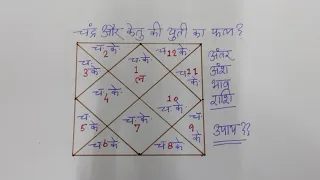 चन्द्र और केतु की युती का फल?
च. के 2
च. के 12
च. के 3
च. के 1 ल
च. 11 के
च. के 4
10 च. के
च 5 के
च. के 7
च. 9 के
च 6 के
च 8 के
अंतर
अंश
भाव
राशि
उपाय??